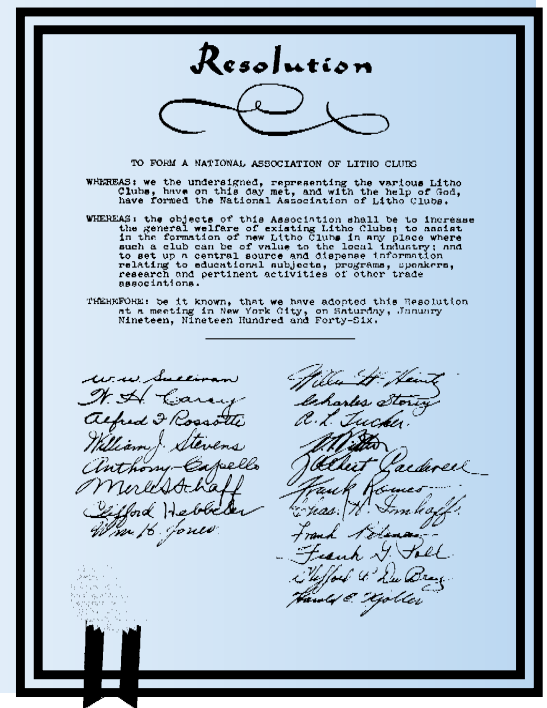 Resolution
TO FORM A NATIONAL ASSOCIATION OF LITHO CLUBS
WHEREAS: we the undersigned, representing the various Litho
Clubs, have on this day met, and with the help of God,
have formed the National Association of Litho Clubs.
WHEREAS: the objects of this Association shall be to increase
the general welfare of existing Litho Clubs; to assist
in the formation of new Litho Clubs in any place where
such a club can be of value to the local industry; and
to set up a central source and dispense information
relating to educational subjects, programs, speakers,
research and pertinent activities of other trade
associations.
THEREFORE: be it known, that we have adopted this Resolution
at a meeting in New York City, on Saturday, January
Nineteen, Nineteen Hundred and Forty-Six.
W. W. Sullivan
Alfred F Rossotti
William J. Stevens
Anthony Capello
Merle Schaff
Clifford Hebbeler
Wm H. Jones
William H.
Charles Storey
A. L. Tucker
Albert
Frank Romeo
Chas. W. Imhoff
Frank
Frank G.
Clifford
Harold E.